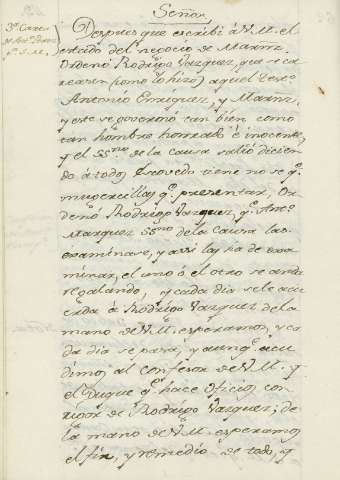 Señor
3ª Carta
Despues que escribí á V.M. el
estado del negocio de Marnz.
Ordenó Rodrigo Vazquez, que se ca
reasen (como lo hizo) aquel
Antonio Enriquez, y Marnz.
y este se governó tan bien como
tan hombre honrado é inocente,
y el SSno de la causa salió dicien
do á todos, Escovedo tiene no se qe
mugercillas qe presentar, Or
denó Rodrigo Vazquez, qe Anto
Marquez SSno de la causa las
examinase, y assi las ha de exa
minar, el uno ó el otro se anda
regalando, y cada dia se le acu
erda á Rodrigo Vazquez de la
mano de V.M. esperamos, y ca
da dia se para, y aunqe acu
dimos al confesor de V.M. y
el Duque qe hace oficios con
rigor de Rodrigo Vazquez; de
la mano de V.M. esperamos
el fin, y remedio de todo, y